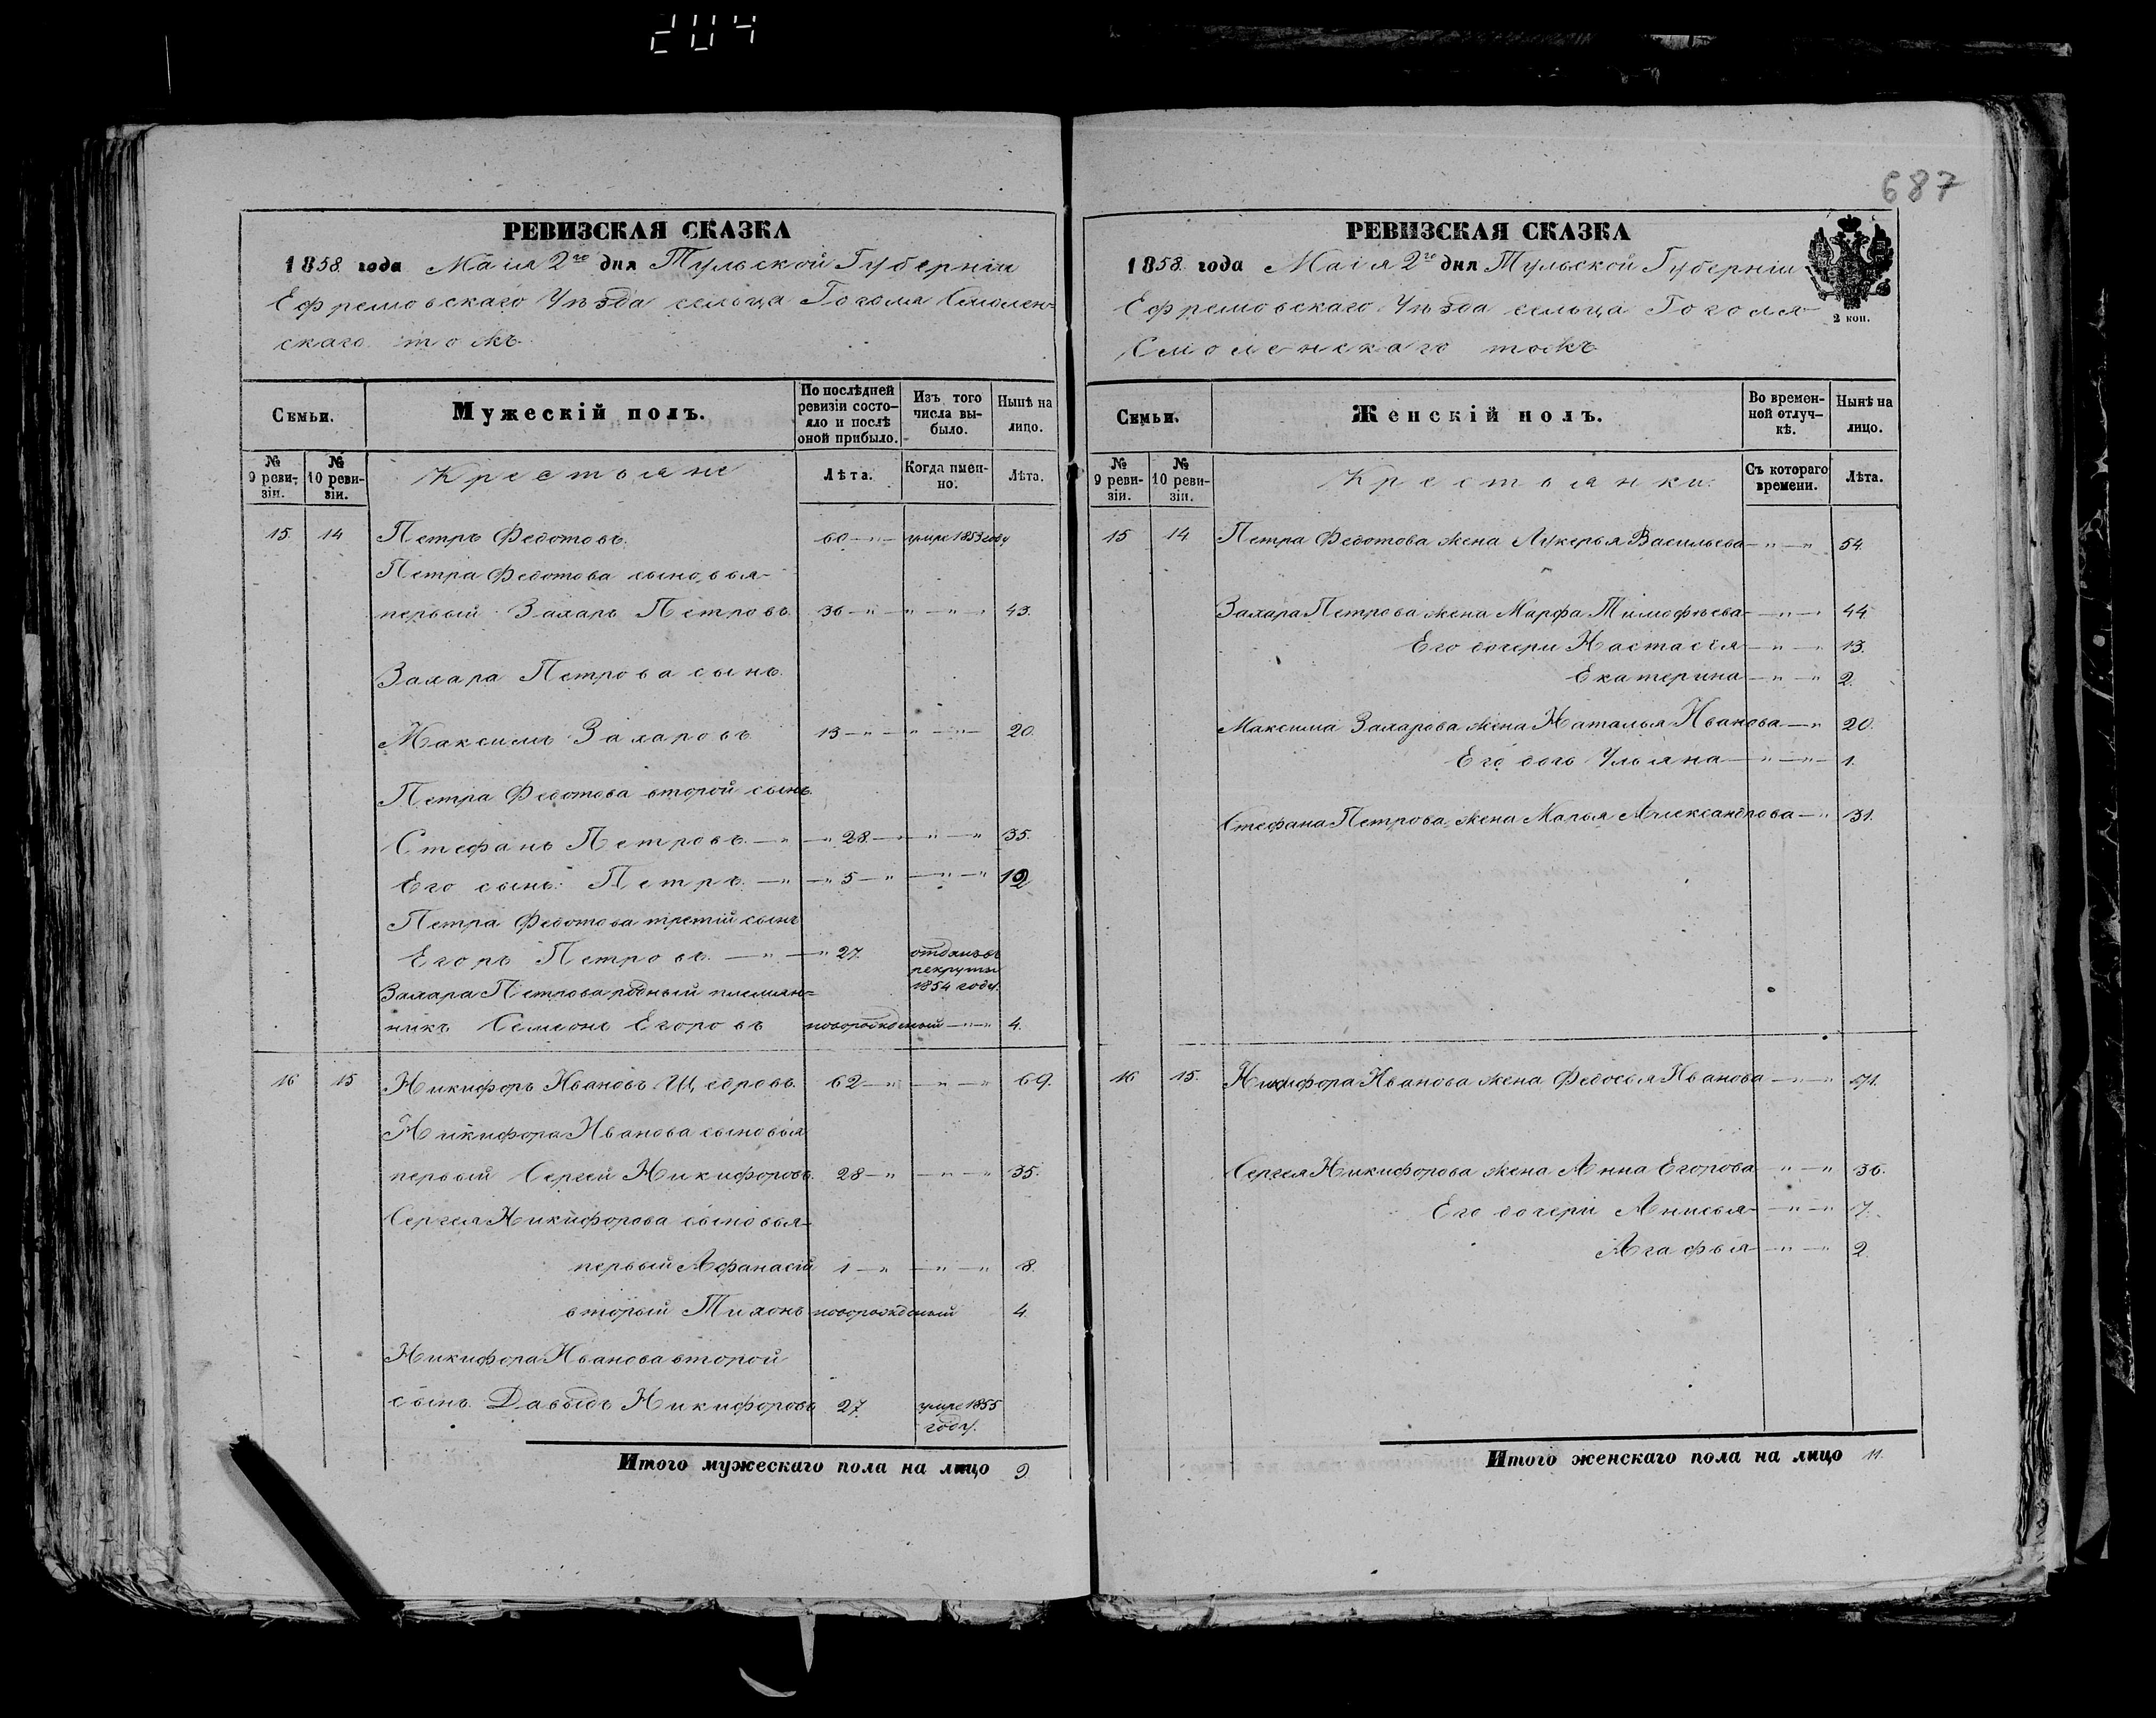 204
687
РЕВИЗСКАЯ СКАЗКА
1858 года Маія 2го дня Тульской Губерніи
Ефремовскаго Уѣзда сельца Гоголя Смолен-
скаго тожъ
Семьи.
Мужескій полъ.
По послѣдней ревизіи состояло и послѣ оной прибыло.
Изъ того числа выбыло.
Нынѣ на лицо.
№ 9 ревизіи.
№ 10 ревизіи.
Крестьяне
Лѣта.
Когда имен-но.
Лѣта.
15 14 Петръ Федотовъ. 60 — умре 1853 году
Петра Федотова сыновья
первый Захаръ Петровъ 36 — 43.
Захара Петрова сынъ
Максимъ Захаровъ 13 — 20.
Петра Федотова второй сынъ
Стефанъ Петровъ. — 28 — 35.
Его сынъ Петръ. — 5 — 12
Петра Федотова третій сынъ
Егоръ Петровъ. — 27. отданъ въ рекруты 1854 году.
Захара Петрова родный племян=
никъ Семионъ Егоровъ новорожденный — 4.
16 15 Никифоръ Ивановъ Щедровъ. 62 — 69.
Никифора Иванова сыновья
первый Сергей Никифоровъ. 28 — 35.
Сергея Никифорова сыновья
первый Афанасій 1 — 8.
вторый Тихонъ новорожденный 4.
Никифора Иванова второй
сынъ Давыдъ Никифоровъ 27. умре 1855 году.
Итого мужескаго пола на лицо 9
РЕВИЗСКАЯ СКАЗКА
1858 года Маія 2го дня Тульской Губерніи
Ефремовскаго Уѣзда сельца Гоголя
Смоленскаго тожъ
2 коп.
Семьи.
Женскій полъ.
Во времен-ной отлуч-кѣ.
Нынѣ на лицо.
№ 9 реви-зіи.
№ 10 реви-зіи.
Крестьянки.
Съ котораго времени.
Лѣта.
15 14 Петра Федотова жена Лукерья Васильева — 54.
Захара Петрова жена Марфа Тимофѣева — 44.
Его дочери Настасія — 13.
Екатерина — 2.
Максима Захарова жена Наталья Иванова — 20.
Его дочь Ульяна — 1.
Стефана Петрова жена Марья Александрова — 31.
16 15. Никифора Иванова жена Федосья Иванова — 71.
Сергея Никифорова жена Анна Егорова — 36.
Его дочери Анисья — 7.
Агафья — 2.
Итого женскаго пола на лицо 11.